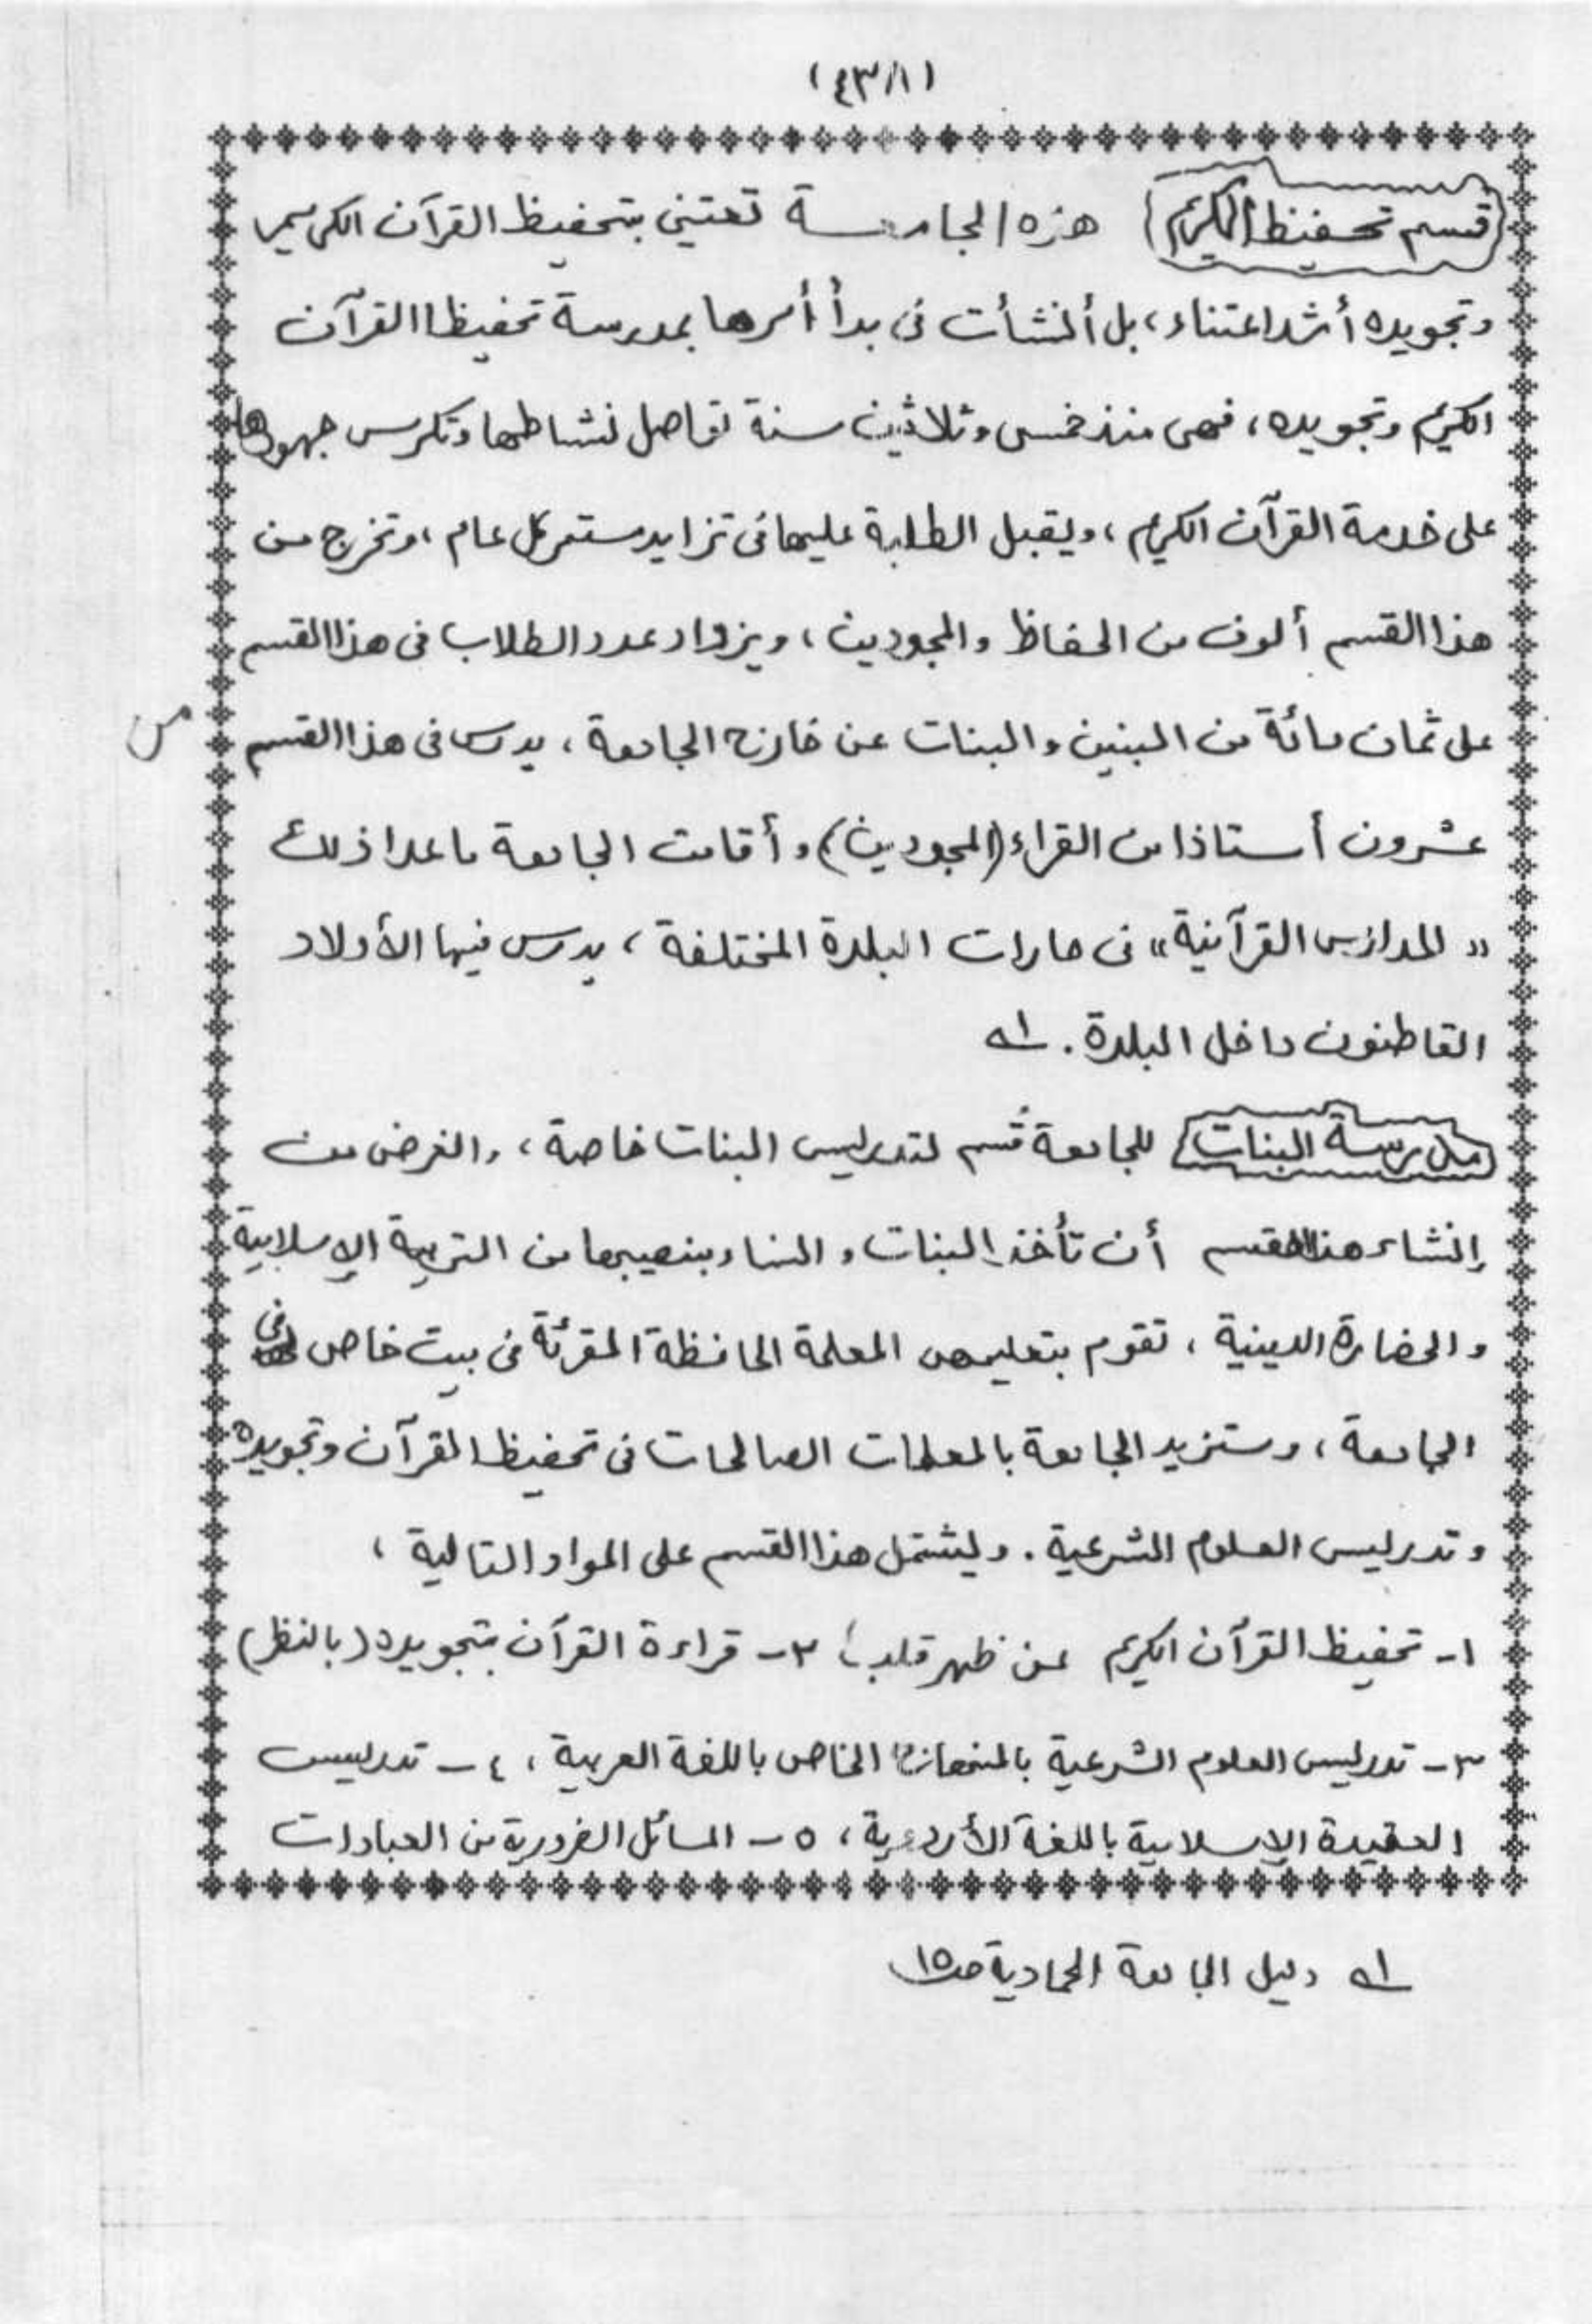 (٤٣٨١)
قسم تحفيظ الكريم هذه الجامعة تعتني بتحفيظ القرآن الكريم
وتجويده أشد اعتناء، بل أنشأت فى بدأ أمرها بمدرسة تحفيظ القرآن
الكريم وتجويده، فهى منذ خمس وثلاثين سنة تواصل نشاطها وتكرس جهودها
على خدمة القرآن الكريم، ويقبل الطلبة عليها فى تزايد مستمر كل عام، وتخرج من
هذا القسم ألوف من الحفاظ والمجودين، ويزداد عدد الطلاب فى هذا القسم
على ثمان مائة من البنين والبنات عن خارج الجامعة، يدرس فى هذا القسم
من
عشرون أستاذا من القراء (المجودين) وأقامت الجامعة ماعدا ذلك
«المدارس القرآنية» فى حارات البلدة المختلفة، يدرس فيها الأولاد
القاطنون داخل البلدة. ١ـه
مدرسة البنات للجامعة قسم لتدريس البنات خاصة، والغرض من
إنشاء هذا القسم أن تأخذ البنات والنساء بنصيبها من التربية الإسلامية
والحضارة الدينية، تقوم بتعليمهن المعلمة الحافظة المقرئة فى بيت خاص فى
الجامعة، وستزيد الجامعة بالمعلمات الصالحات فى تحفيظ القرآن وتجويده
وتدريس العلوم الشرعية. ويشتمل هذا القسم على المواد التالية،
١- تحفيظ القرآن الكريم عن ظهر قلب، ٢- قراءة القرآن بتجويده (بالنظر)
٣- تدريس العلوم الشرعية بالمنهاج الخاص باللغة العربية، ٤- تدريس
العقيدة الإسلامية باللغة الأردية، ٥- المسائل الضرورية من العبادات
١ـه دليل الجامعة الحمادية صـ١٥